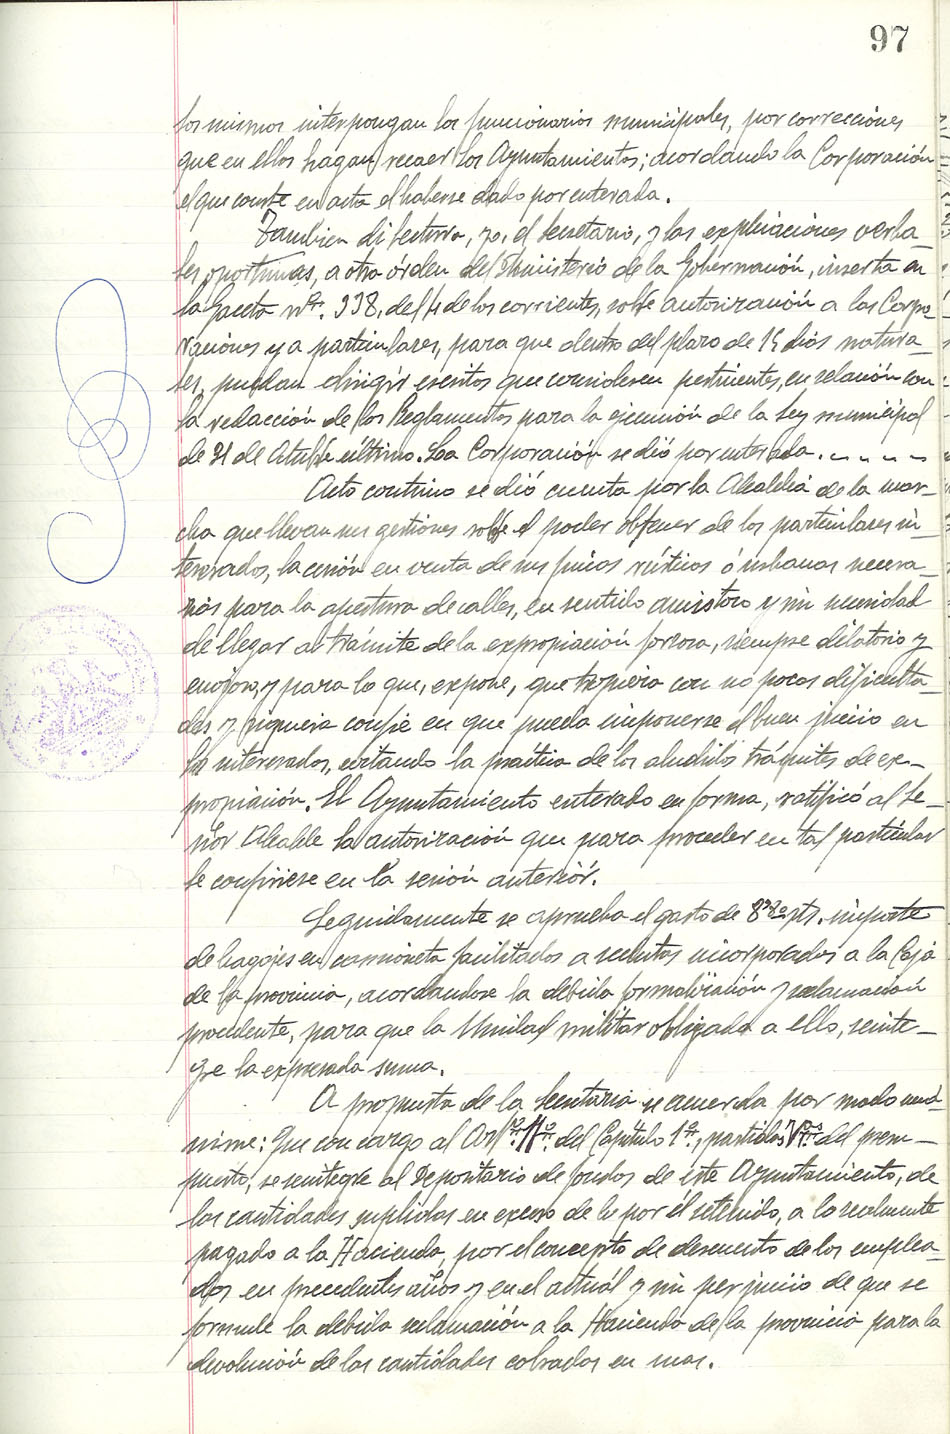 97
los mismos interpongan los funcionarios municipales, por correcciones
que en ellos hagan recaer los Ayuntamientos; acordando la Corporación
el que conste en acta el haberse dado por enterada.
Tambien di lectura, yo, el Secretario, y las explicaciones verba-
les oportunas, a otra órden del Ministerio de la Gobernación, inserta en
la Gaceta nº. 338, del 4 de los corrientes, sobre autorización a las Corpo-
raciones y a particulares, para que dentro del plazo de 15 dias natura-
les, puedan dirigir escritos que consideren pertinentes, en relación con
la redacción de los Reglamentos para la ejecución de la Ley municipal
de 31 de Octubre último. La Corporación se dió por enterada. - - - -
Acto continuo se dió cuenta por la Alcaldia de la mar-
cha que llevan sus gestiones sobre el poder obtener de los particulares in-
teresados, la cesión en venta de sus fincas rústicas ó urbanas necesa-
rias para la apertura de calles, en sentido amistoso y sin necesidad
de llegar al trámite de la expropiación forzosa, siempre dilatorio y
enojoso, y para lo que, expone, que tropieza con no pocas dificulta-
des y siquiera confie en que pueda imponerse el buen juicio en
los interesados, evitando la práctica de los aludidos trámites de ex-
propiación. El Ayuntamiento enterado en forma, ratificó al Se-
ñor Alcalde la autorización que para proceder en tal particular
le confiriese en la sesión anterior.
Seguidamente se aprueba el gasto de pts. importe
de bagajes en camioneta facilitados a reclutas incorporados a la Caja
de la provincia, acordandose la debida formalización y reclamación
procedente, para que la Unidad militar obligada a ello, reinte-
gre la expresada suma.
A propuesta de la Secretaria se acuerda por modo uná-
nime: Que con cargo al Artº. del Capítulo 1º, partida del presu-
puesto, se reintegre al Depositario de fondos de este Ayuntamiento, de
las cantidades suplidas en exceso de lo por él retenido, a lo realmente
pagado a la Hacienda, por el concepto de descuento de los emplea-
dos en precedentes años y en el actuál y sin perjuicio de que se
formule la debida reclamación a la Hacienda de la provincia para la
devolución de las cantidades cobradas en mas.